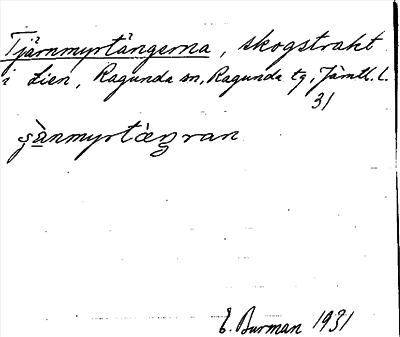 Tjärnmyrtängerna, skogstrakt
i Lien, Ragunda sn, Ragunda tg, Jämtl. l.
31
ʂànmyrtæ̀ŋran
E. Burman 1931